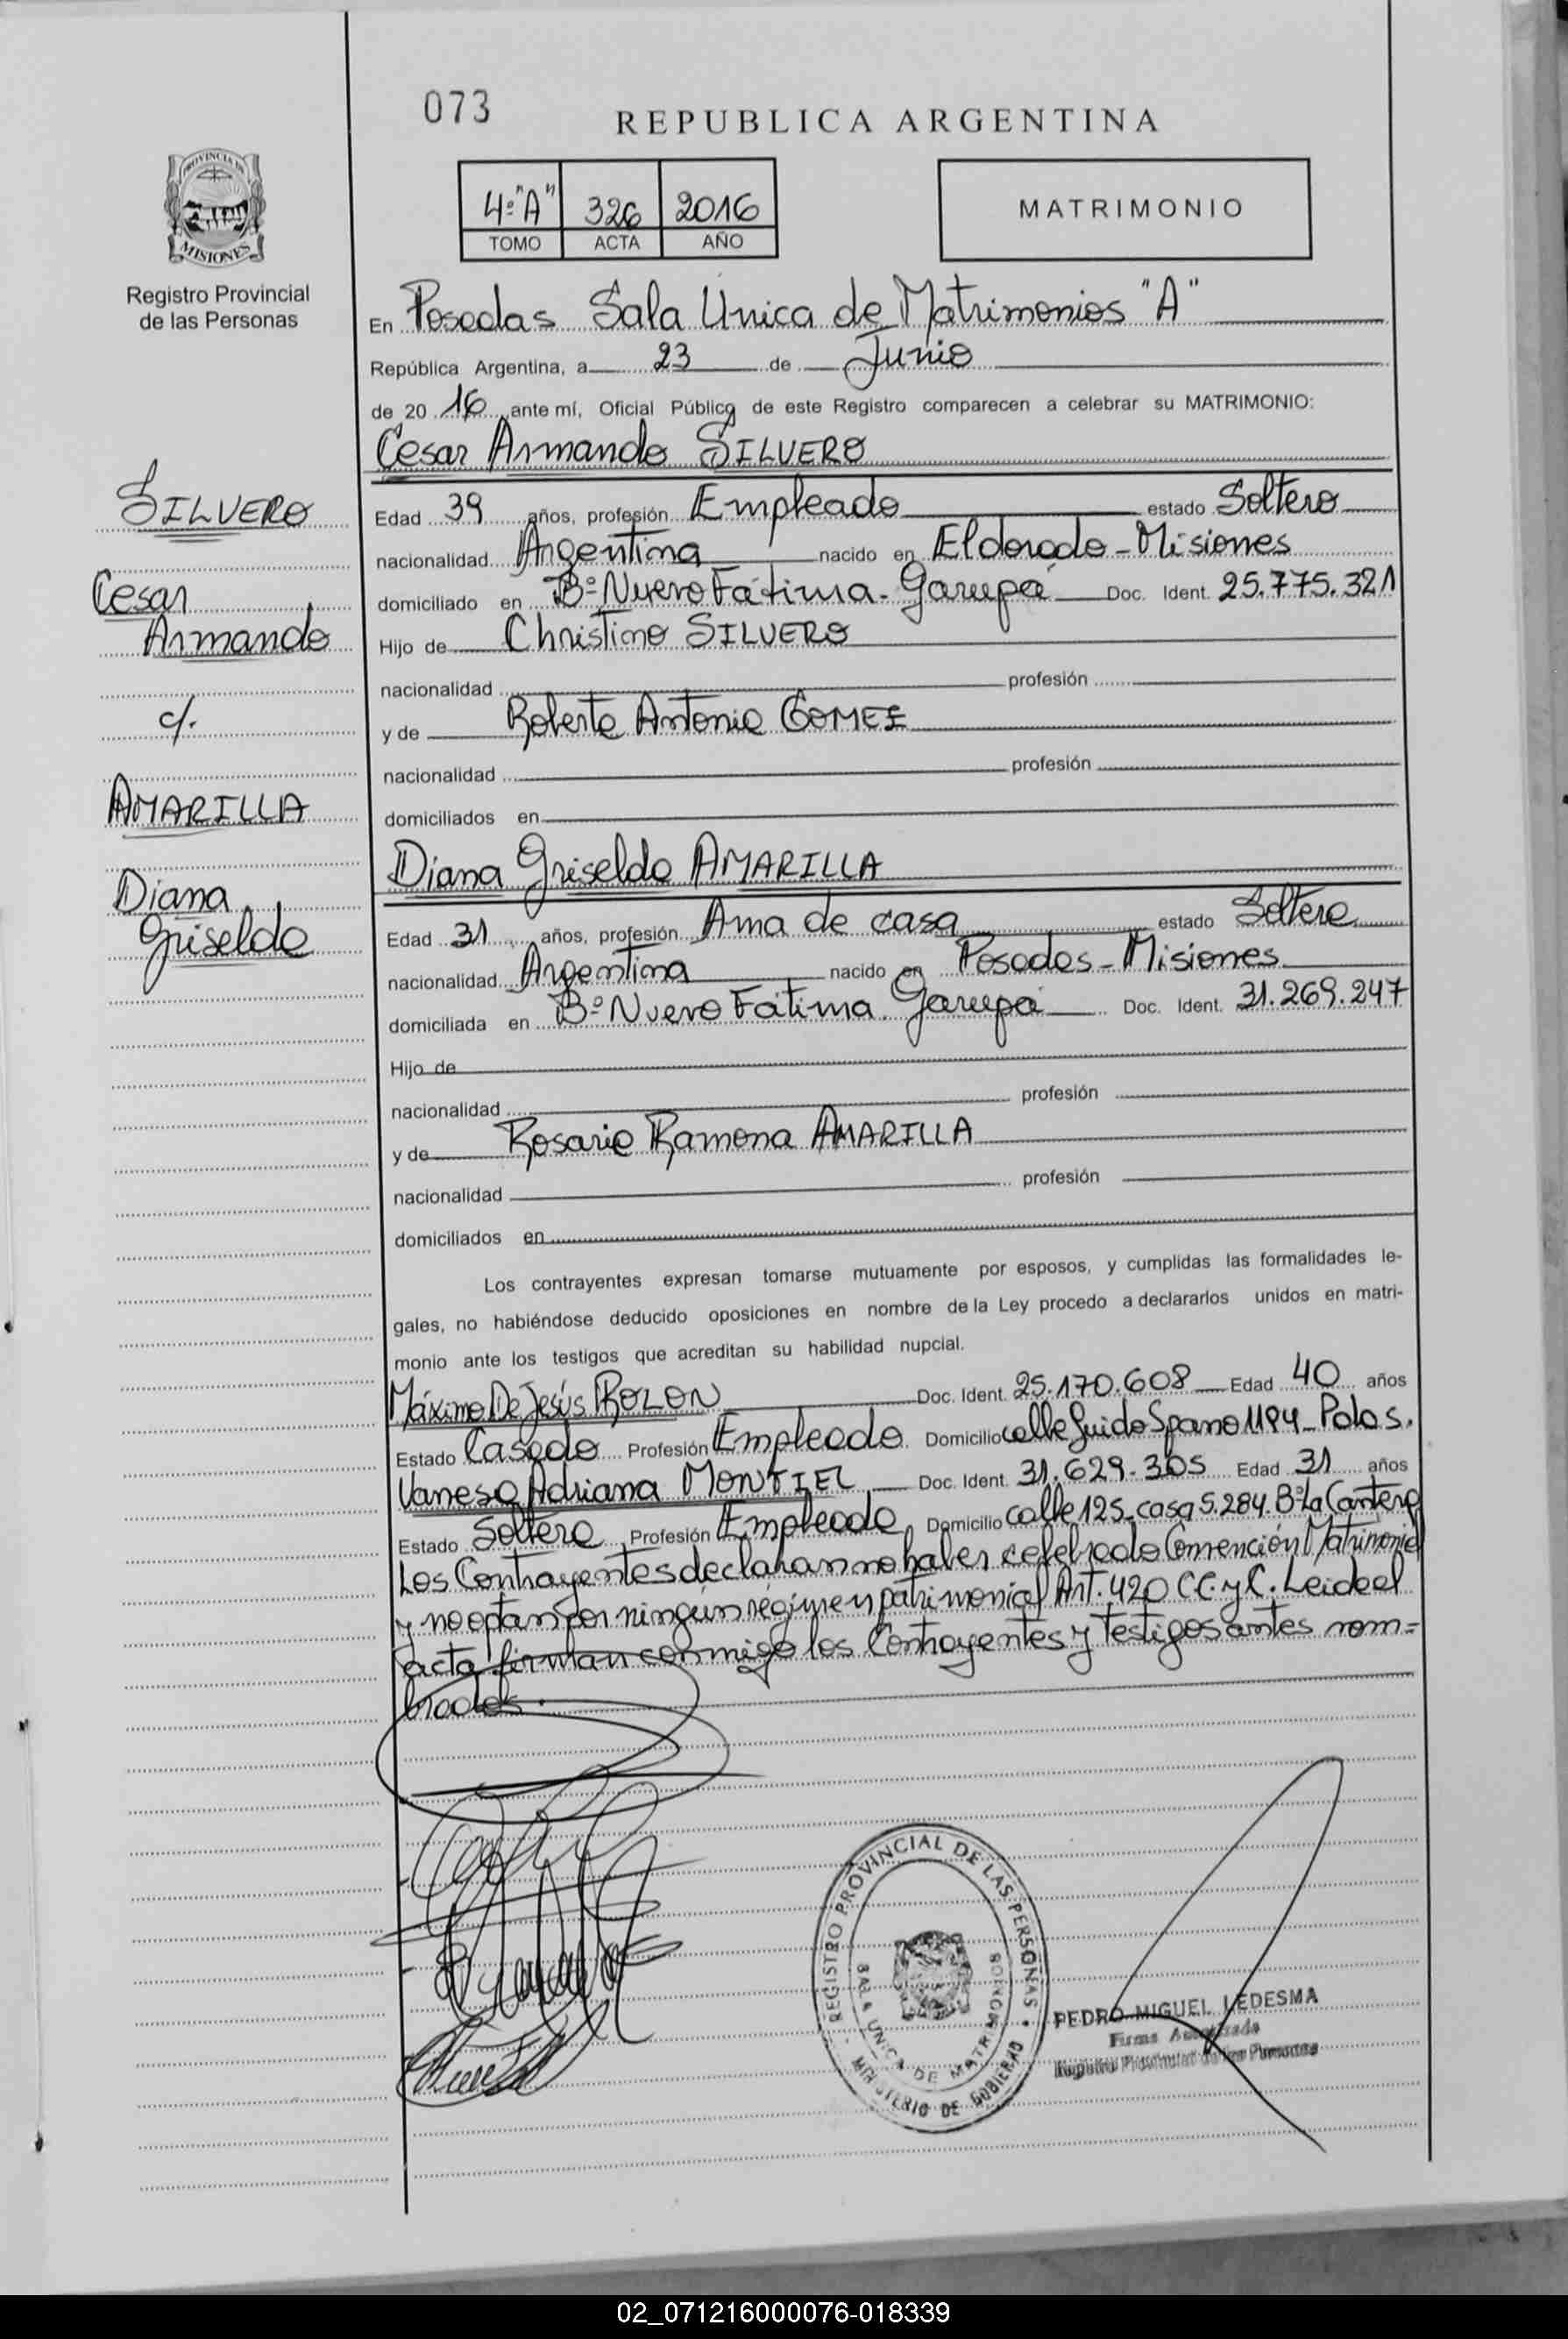 073
REPUBLICA ARGENTINA
PROVINCIA DE
MISIONES
Registro Provincial
de las Personas
4º "A" 326 2016
TOMO ACTA AÑO
MATRIMONIO
En Posadas Sala Unica de Matrimonios "A"
República Argentina, a 23 de Junio
de 20 16 ante mí, Oficial Público de este Registro comparecen a celebrar su MATRIMONIO:
Cesar Armando SILVERO
SILVERO
Cesar
Armando
c/.
AMARILLA
Diana
Griselda
Edad 39 años, profesión Empleado estado Soltero
nacionalidad Argentina nacido en Eldorado - Misiones
domiciliado en Bº Nuevo Fátima - Garupá Doc. Ident. 25.775.321
Hijo de Christino SILVERO
nacionalidad profesión
y de Roberta Antonia GOMEZ
nacionalidad profesión
domiciliados en
Diana Griselda AMARILLA
Edad 31 años, profesión Ama de casa estado Soltera
nacionalidad Argentina nacido en Posadas - Misiones
domiciliada en Bº Nuevo Fátima. Garupá Doc. Ident. 31.269.247
Hijo de
nacionalidad profesión
y de Rosario Ramona AMARILLA
nacionalidad profesión
domiciliados en
Los contrayentes expresan tomarse mutuamente por esposos, y cumplidas las formalidades le-
gales, no habiéndose deducido oposiciones en nombre de la Ley procedo a declararlos unidos en matri-
monio ante los testigos que acreditan su habilidad nupcial.
Máximo De Jesús ROLON Doc. Ident. 25.170.608 Edad 40 años
Estado Casado Profesión Empleado Domicilio calle Guido Spano 1194 -
Vanesa Adriana MONTIEL Doc. Ident. 31.629.305 Edad 31 años
Estado Soltera Profesión Empleada Domicilio calle 125 - casa 5.284. Bº La Cantera
Los Contrayentes declaran no haber celebrado Convención Matrimonial
y no optan por ningún régimen patrimonial Art. 420 CC. y C. Leida el
acta firman conmigo los Contrayentes y testigos antes nom=
brados.
REGISTRO PROVINCIAL DE LAS PERSONAS
SALA UNICA DE MATRIMONIOS
MINISTERIO DE GOBIERNO
PEDRO MIGUEL LEDESMA
Firma Autorizada
Registro Provincial de las Personas
02_071216000076-018339